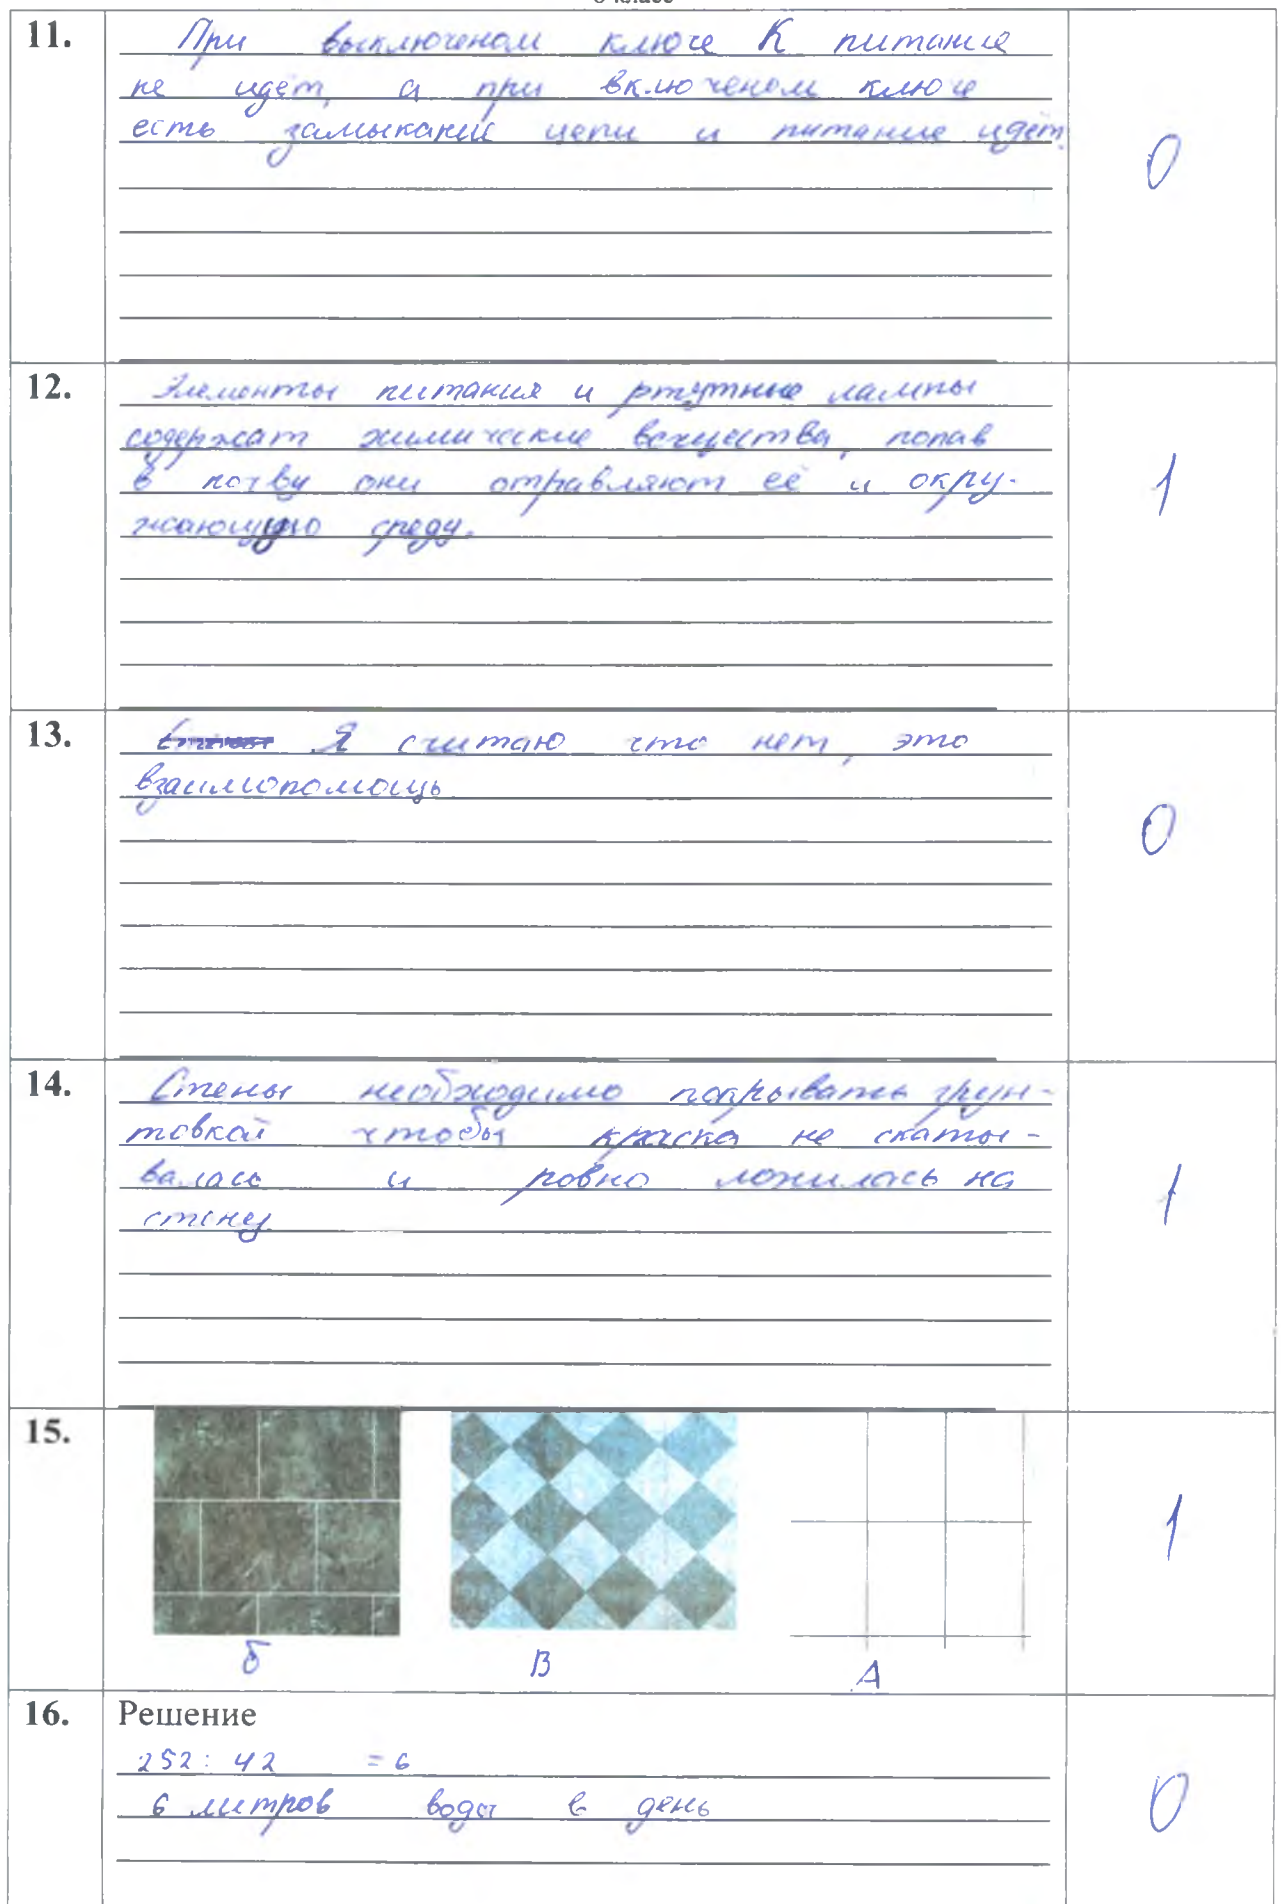 8 класс
11.
При выключеном ключе К питание
не идёт, а при включеном ключе
есть замыкание цепи и питание идёт.
0
12.
Элементы питания и ртутные лампы
содержат химические вещества, попав
в почву они отравляют её и окру-
жающую среду.
1
13.
Я считаю что нет, это
взаимопомощь
0
14.
Стены необходимо покрывать грун-
товкой чтобы краска не скаты-
валась и ровно ложилась на
стену
1
15.
б В А
1
16.
Решение
252 : 42 = 6
6 литров воды в день
0